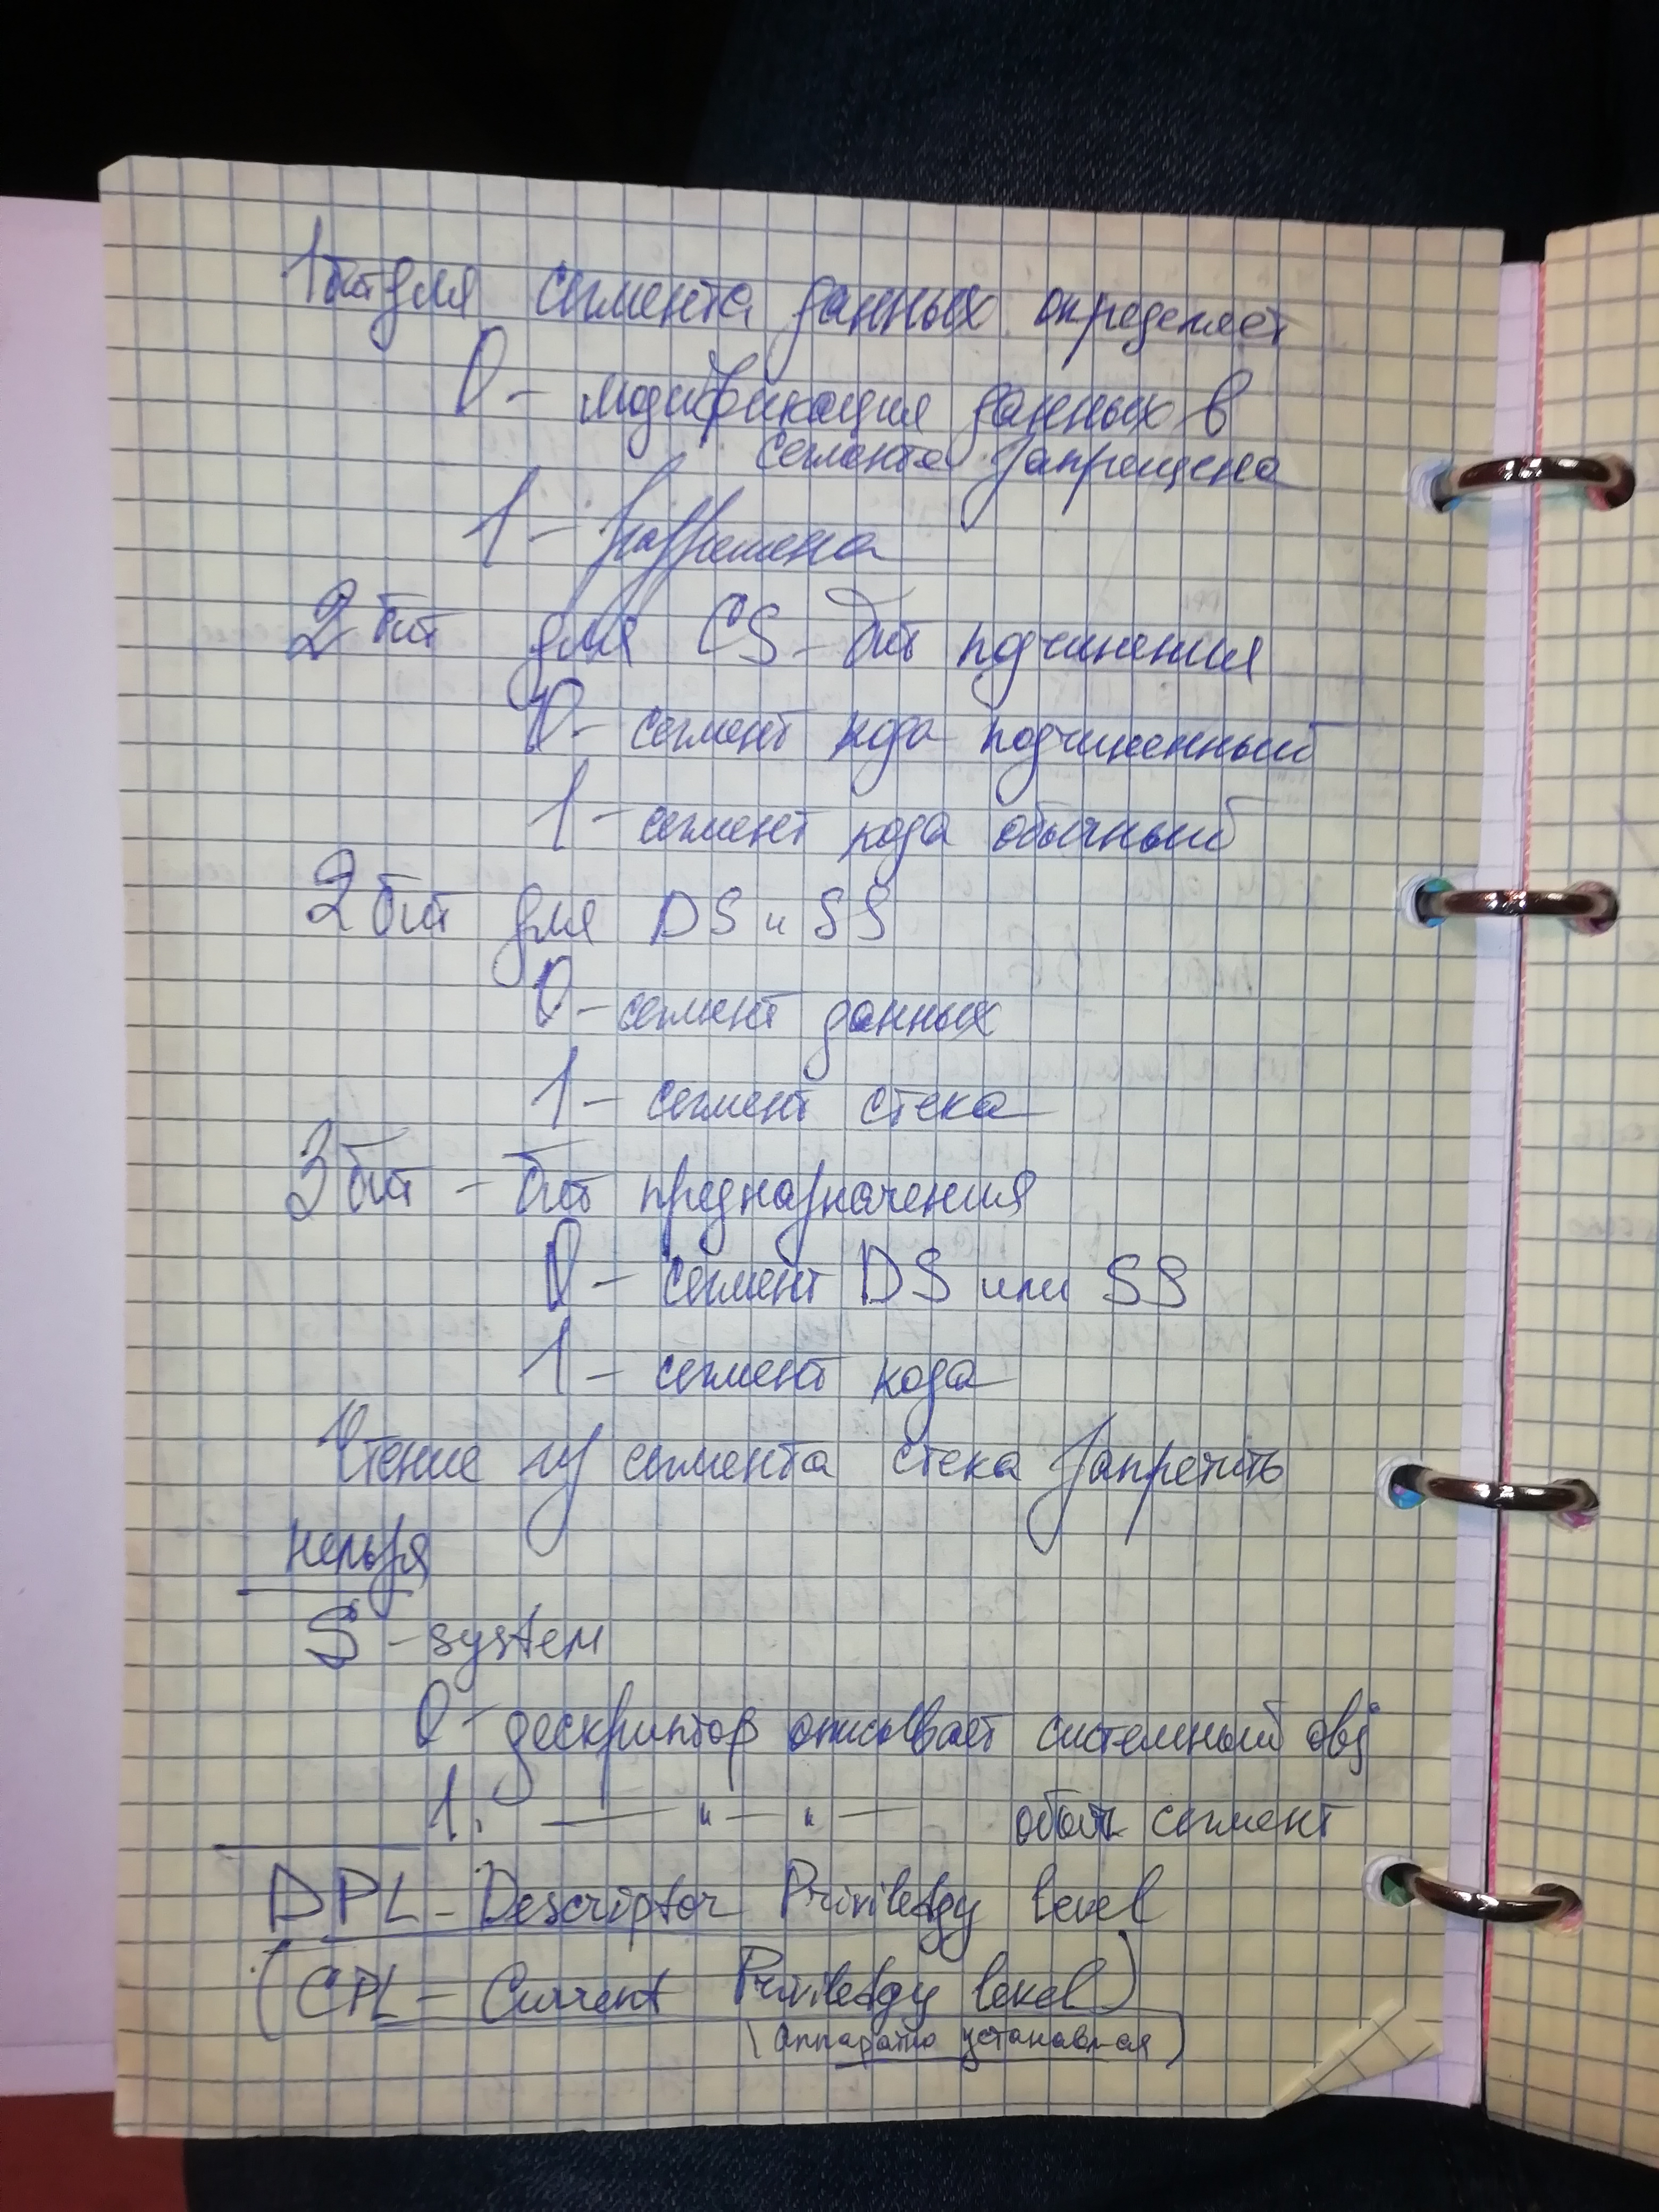 1 бит для сегмента данных определяет
0 – модификация данных в
сегменте запрещена
1 – разрешена
2 бит для CS – бит подчинения
0 – сегмент кода подчиненный
1 – сегмент кода обычный
2 бит для DS и SS
0 – сегмент данных
1 – сегмент стека
3 бит – бит предназначения
0 – сегмент DS или SS
1 – сегмент кода
Чтение из сегмента стека запретить
нельзя
S – system
0 – дескриптор описывает системный obj
1. — " — " — обыч сегмент
DPL – Descriptor Priviledgy level
(CPL – Current Priviledgy level)
(аппаратно устанавл-ся)